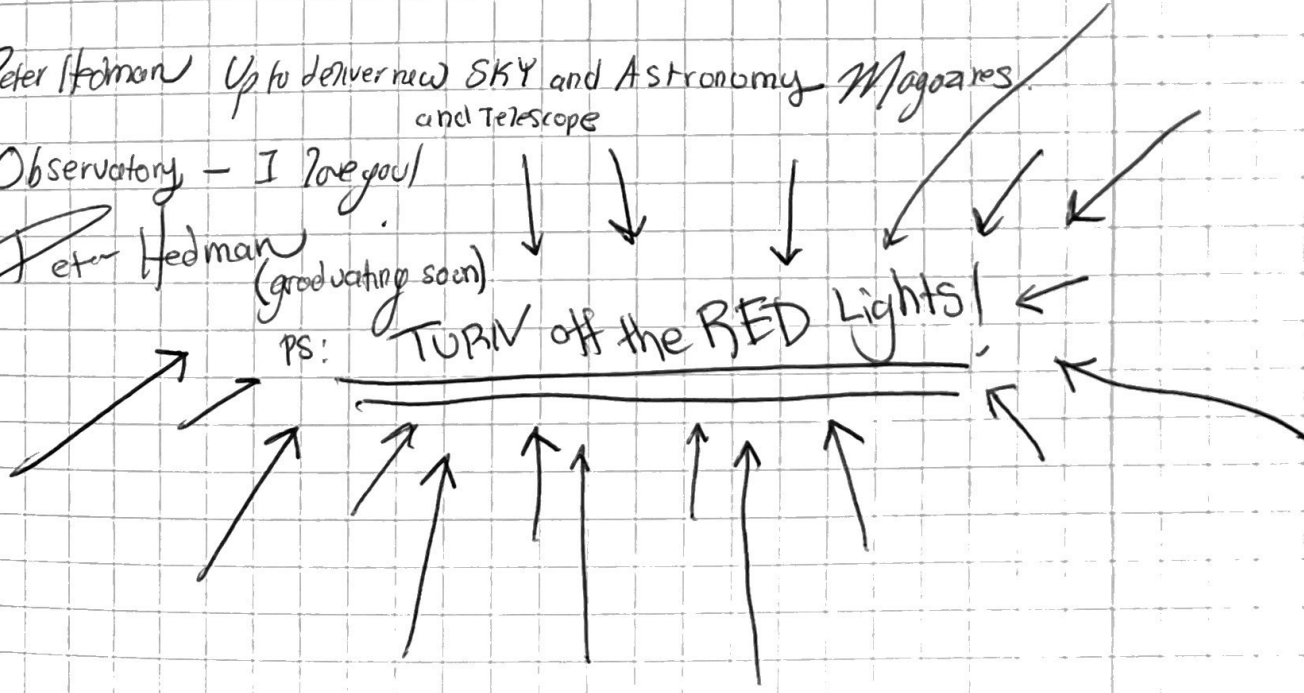 Peter Hedman Up to deliver new SKY and Astronomy Magazines
and Telescope
Observatory - I love you!
Peter Hedman
(graduating soon)
PS: TURN off the RED Lights!